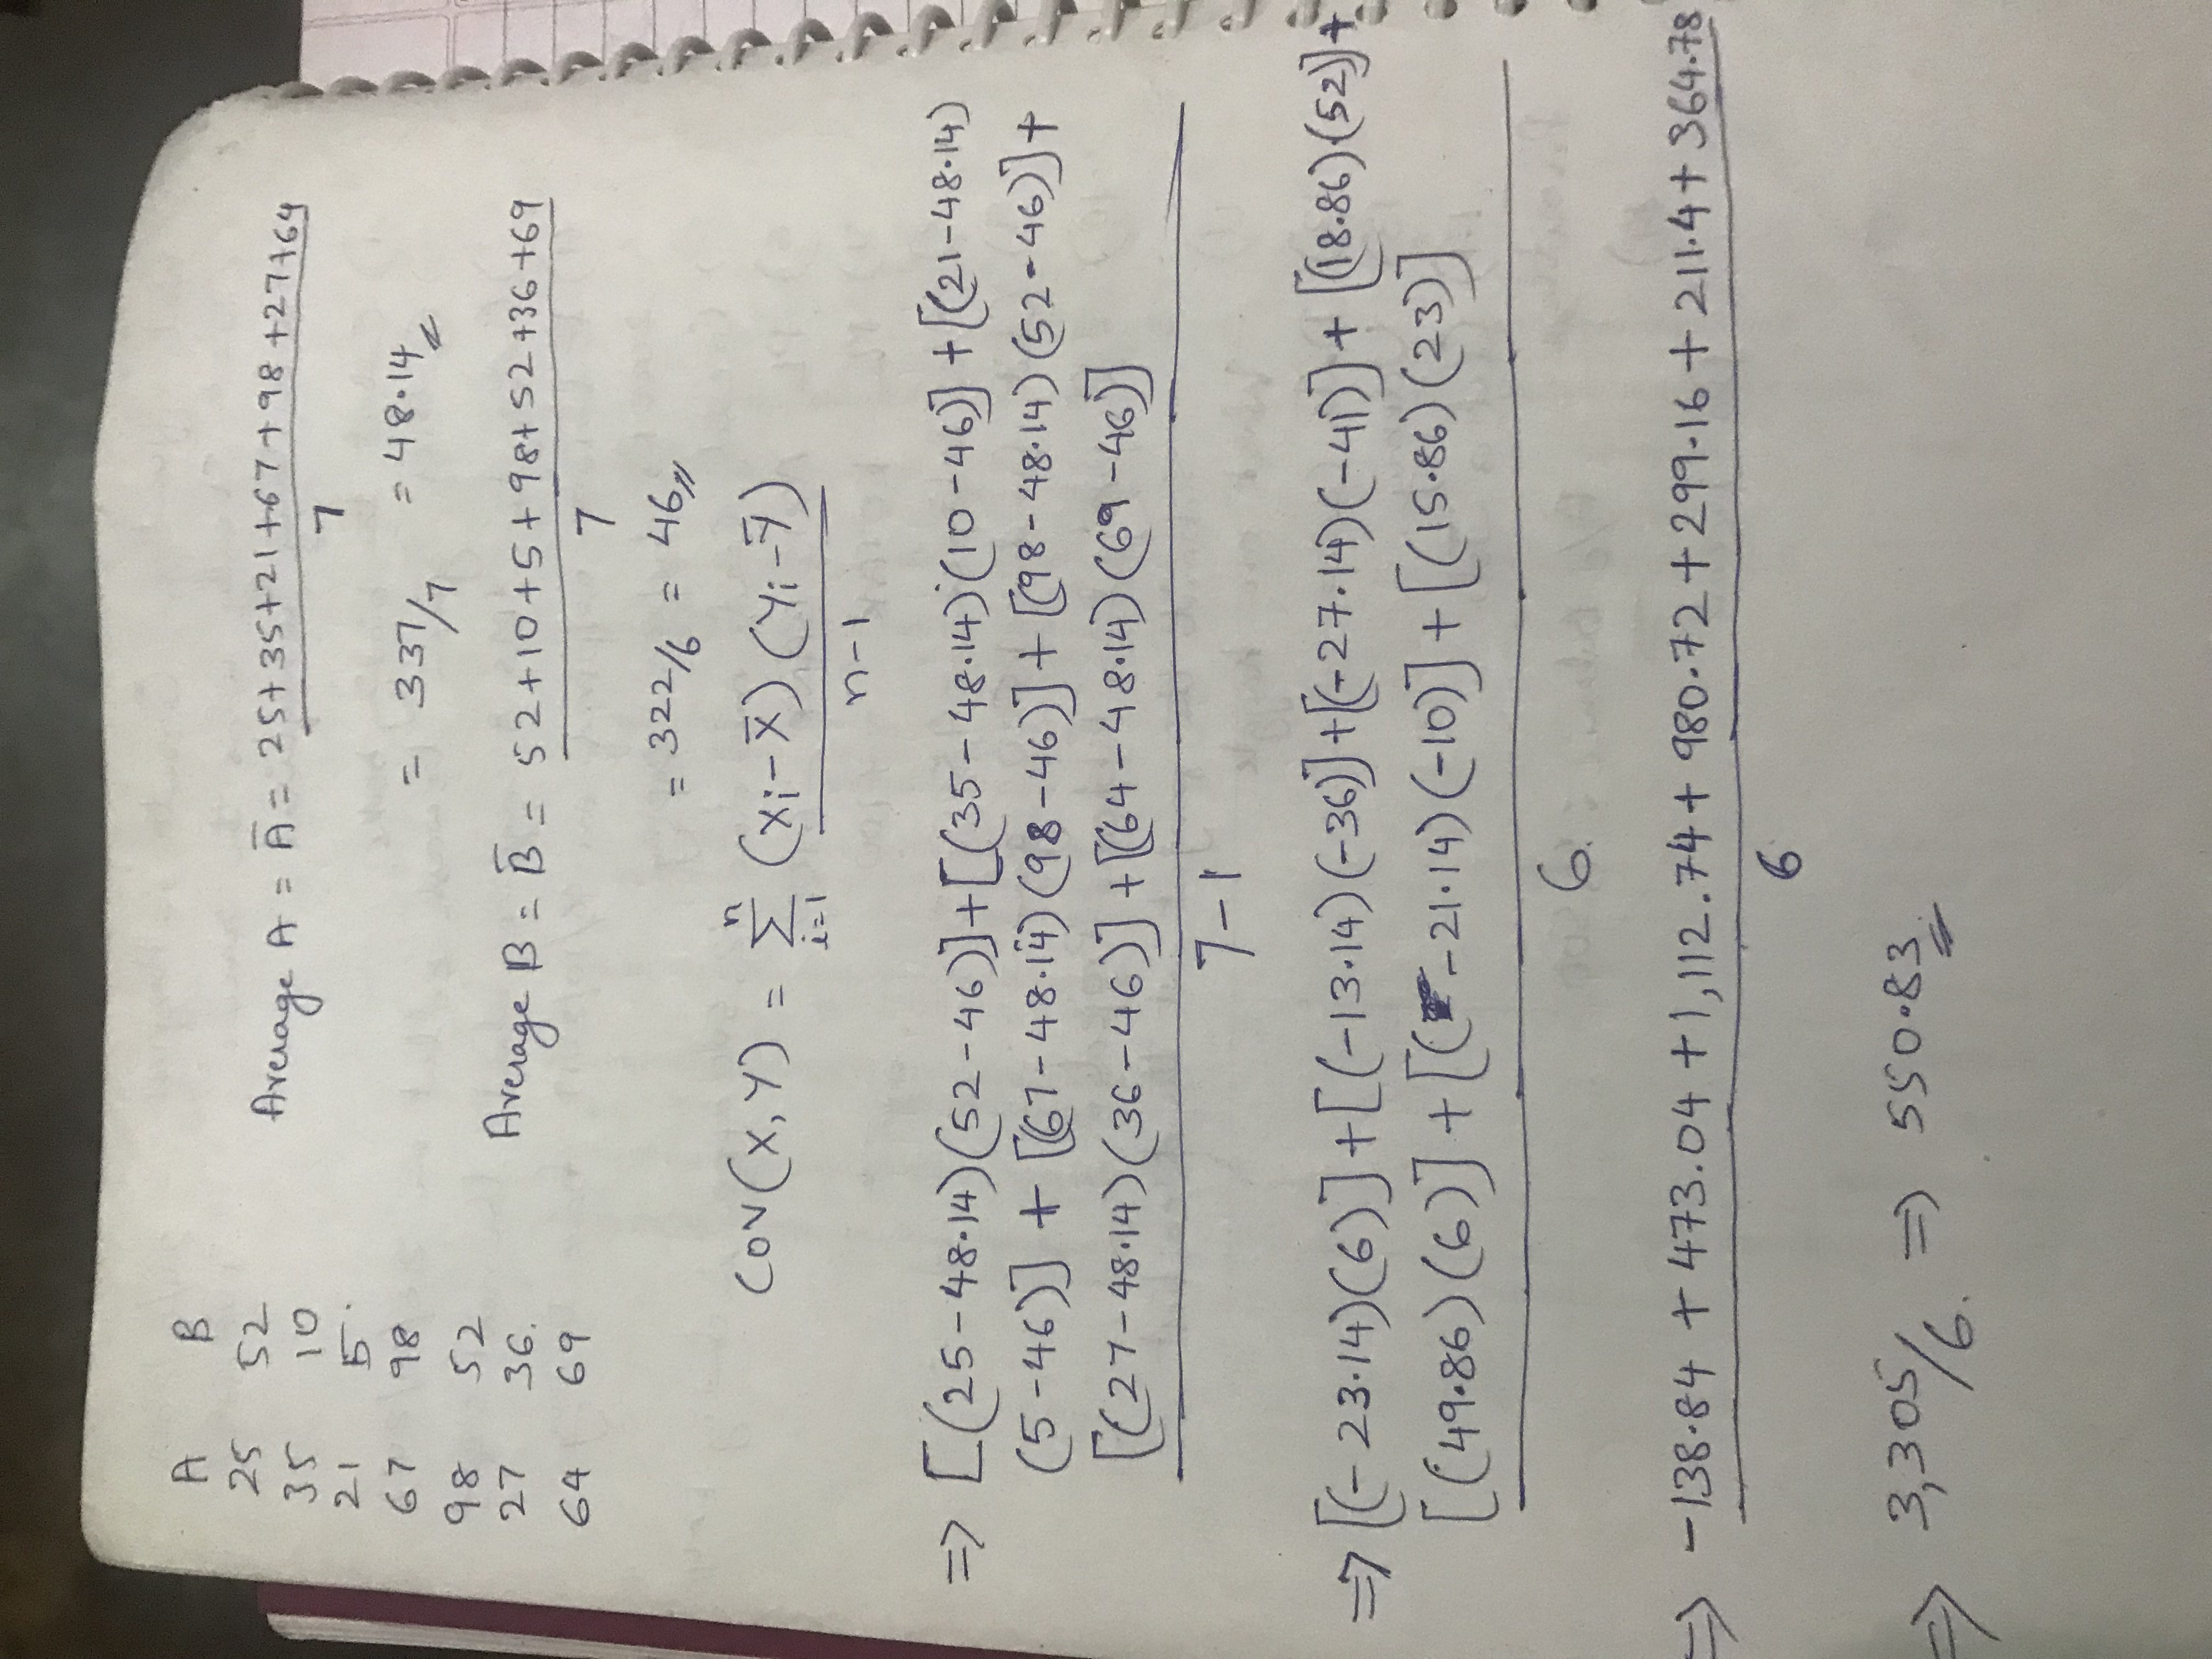 A B
25 52
35 10
21 5
67 98
98 52
27 36.
64 69
Average A = A̅ = 25+35+21+67+98+27+64
7
= 337/7 = 48.14
Average B = B̅ = 52+10+5+98+52+36+69
7
= 322/6 = 46
Cov(X,Y) = n Σ i=1 (Xi-X̅) (Yi-Y̅)
n-1
=> [(25-48.14)(52-46)]+[(35-48.14)(10-46)]+[(21-48.14)
(5-46)] + [(67-48.14)(98-46)]+[(98-48.14)(52-46)]+
[(27-48.14)(36-46)]+[(64-48.14)(69-46)]
7-1
=> [(-23.14)(6)]+[(-13.14)(-36)]+[(-27.14)(-41)]+[(18.86)(52)]+
[(49.86)(6)]+[(-21.14)(-10)]+[(15.86)(23)]
6.
=> -138.84 + 473.04 +1,112.74+ 980.72+299.16+211.4+364.78
6
=> 3,305/6. => 550.83